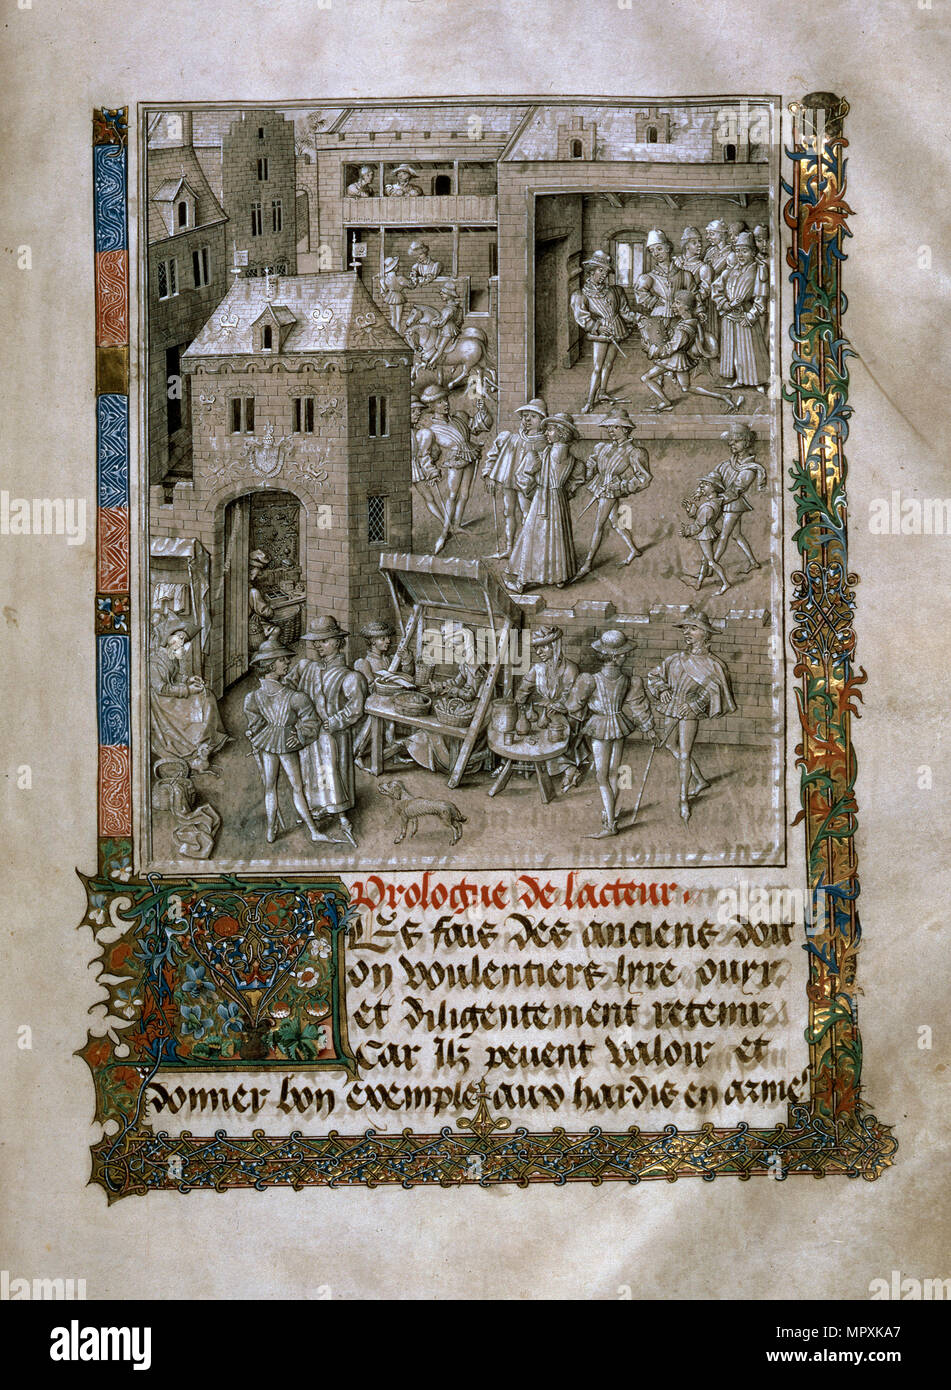 Prologue de lacteur.
Les fais des anciens doit
on voulentiers lyre ouyr
et diligentement retenir
Car Ilz peuent valoir et
donner bon exemple aux hardis en armes
alamy
Image ID: MPXKA7
www.alamy.com